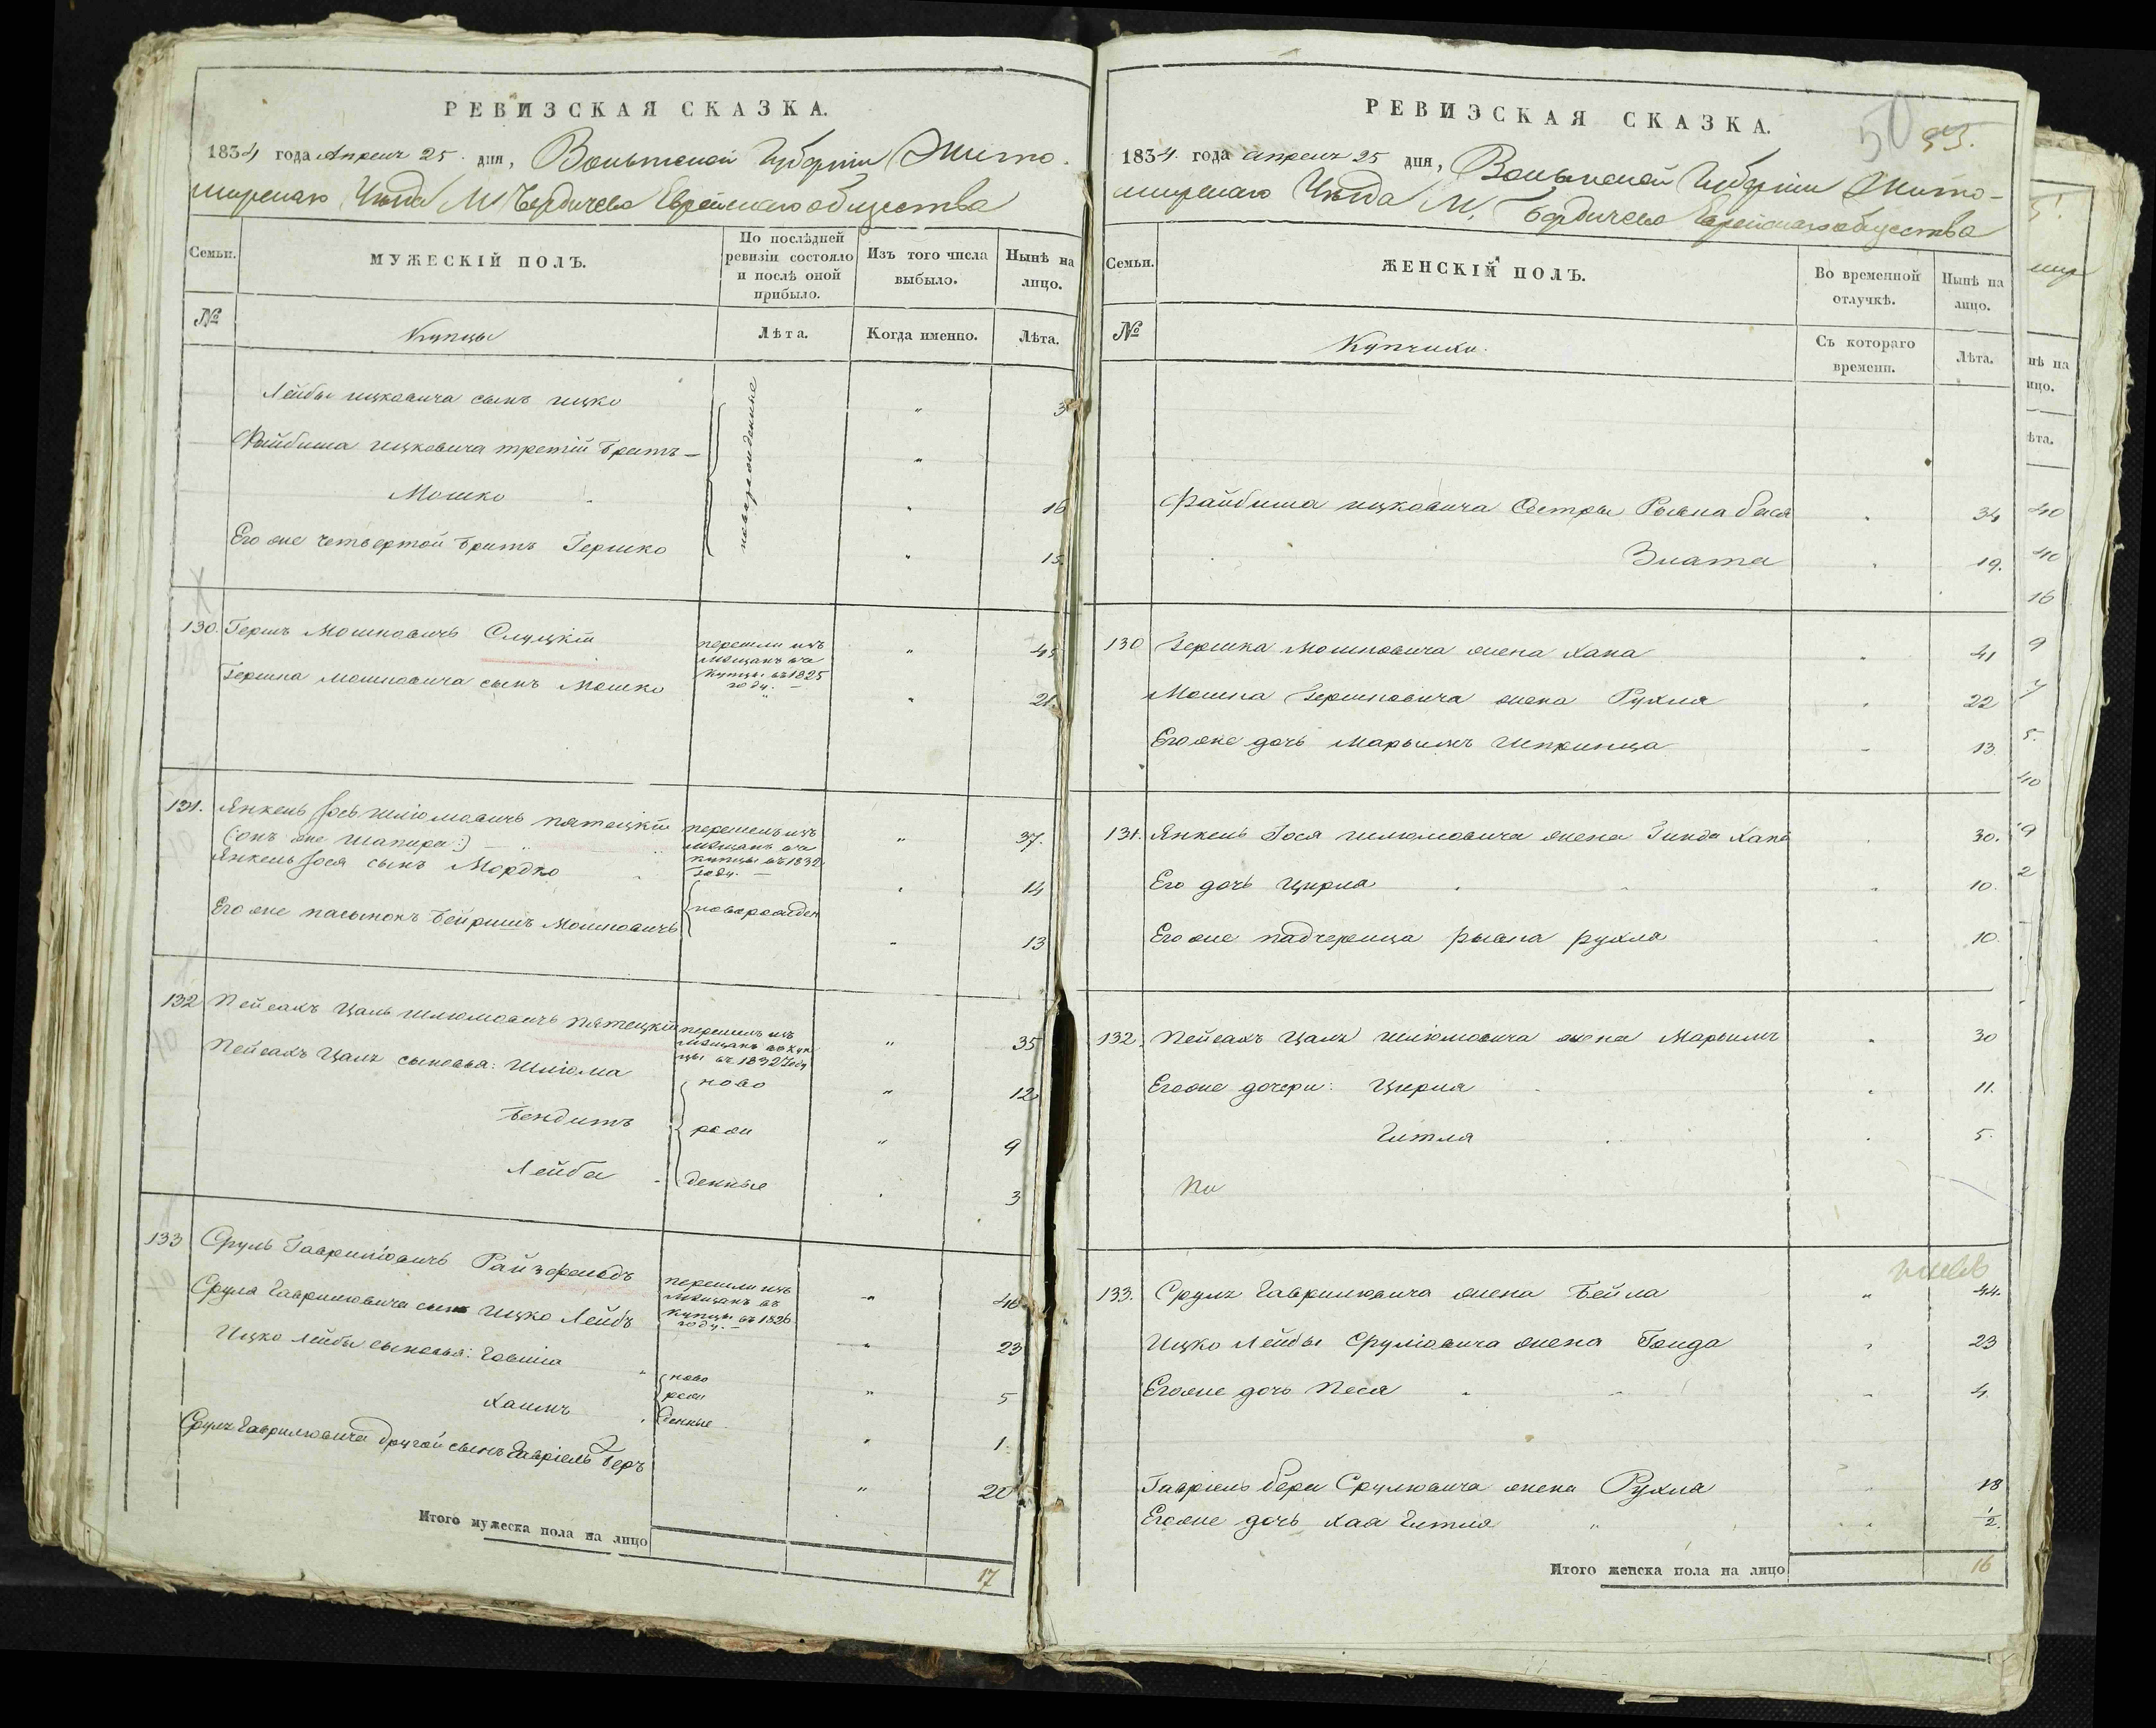 РЕВИЗСКАЯ СКАЗКА.
1834 года Апреля 25. дня, Волынской Губерніи Жито-
мирскаго Уѣзда М Бердичева Еврейскаго общества
Семьи.
МУЖЕСКІЙ ПОЛЪ.
По послѣдней ревизіи состояло и послѣ оной прибыло.
Изъ того числа выбыло.
Нынѣ на лицо.
№
Купцы
Лѣта.
Когда именно.
Лѣта.
Лейбы ицковича сынъ ицко " 3
Файбиша ицковича третій братъ — "
новорожденные
Мошко 16
Его же четвертой братъ Гершко 15.
130. Гершъ Мошковичъ Слуцкій
перешли изъ мѣщанъ въ купцы въ 1825 году. —
" 45
Гершка мошковича сынъ Мошко " 21.
131. Янкель Іось шліомовичъ пятецкій
(онъ же Шапира:)
перешелъ изъ мѣщанъ въ купцы въ 1832 году. —
" 37.
Янкель Іося сынъ Мордко 14
Его же пасынокъ Бейришъ Мошковичъ новорожден 13
132 Пейсахъ Цаль шліомовичъ пятецкій
перешелъ изъ мѣщанъ въ куп цы въ 1832 году
" 35
Пейсахъ Цаля сыновья: Шліома ново " 12.
Бендитъ рож " 9
Лейба денные 3
133 Сруль Гаврилювичъ Райзфельдъ
перешли изъ мѣщанъ въ купцы въ 1826 году. —
" 46
Сруля Гаврилювича сынъ Ицко Лейбъ 23
Ицко Лейбы сыновья: Говшіа ново рож денные " 5
Хаимъ 1.
Сруля Гаврилювича другой сынъ Гавріель Беръ " 20
Итого мужеска пола на лицо 17
РЕВИЗСКАЯ СКАЗКА.
50
1834. года апреля 25 дня, Волынской Губерніи Жито-
мирскаго Уѣзда М. Бердичева Еврейскаго общества
Семьи.
ЖЕНСКІЙ ПОЛЪ.
Во временной отлучкѣ.
Нынѣ на лицо.
№
Купчихи.
Съ котораго времени.
Лѣта.
Файбиша ицковича Сестры Рывка бася 34
Злата 19.
130 Гершка мошковича жена хана 41
Мошка Гершковича жена Рухля 22
Его же дочь марьимъ Шпринца 13.
131. Янкель Іося шлюмовича жена Гинда Хана 30.
Его дочь Цирля 10.
Его же падчерица рывка рухля 10.
132. Пейсахъ Цаля шліомовича жена Марьимъ 30
Его же дочери: Цирля 11.
Гитля 5.
133. Сруля Гаврилювича жена Бейла " 44.
Ицко Лейбы Сруліовича жена Гожда 23
Его же дочь Песя 4.
Гавріель бера Срулювича жена Рухля 18
Его же дочь хая Гитля ½.
Итого женска пола на лицо 16
мир
нѣ на
ицо.
ѣта.
40
40
16
9
7
5.
40
9
2